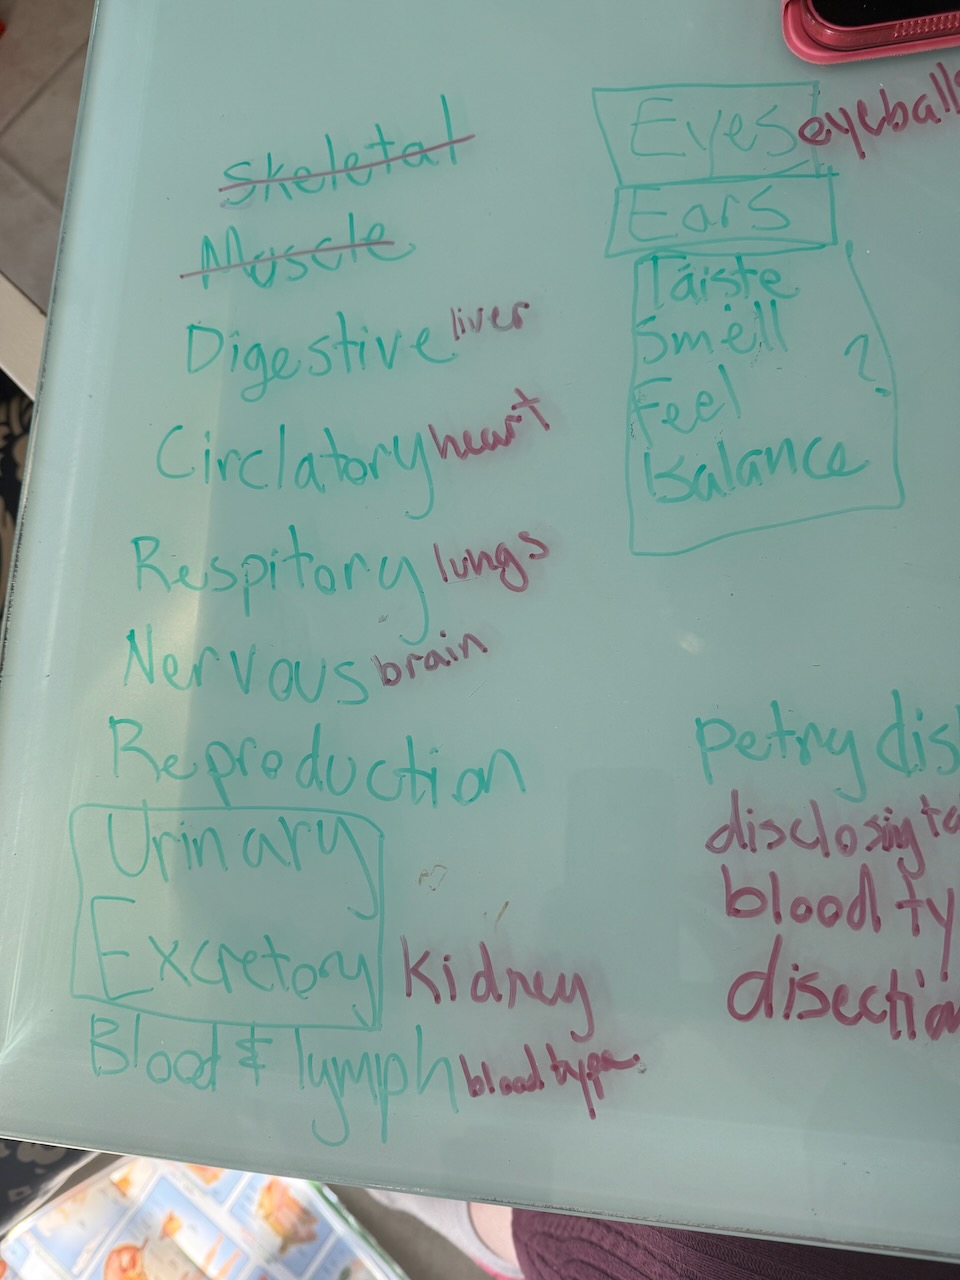 Skeletal
Muscle
Digestive liver
Circlatory heart
Respitory lungs
Nervous brain
Reproduction
Urinary
Excretory Kidney
Blood & lymph blood type
Eyes eyeballs
Ears
Taiste
Smell
Feel
?
Balance
petry dis
disclosing ta
blood ty
disection